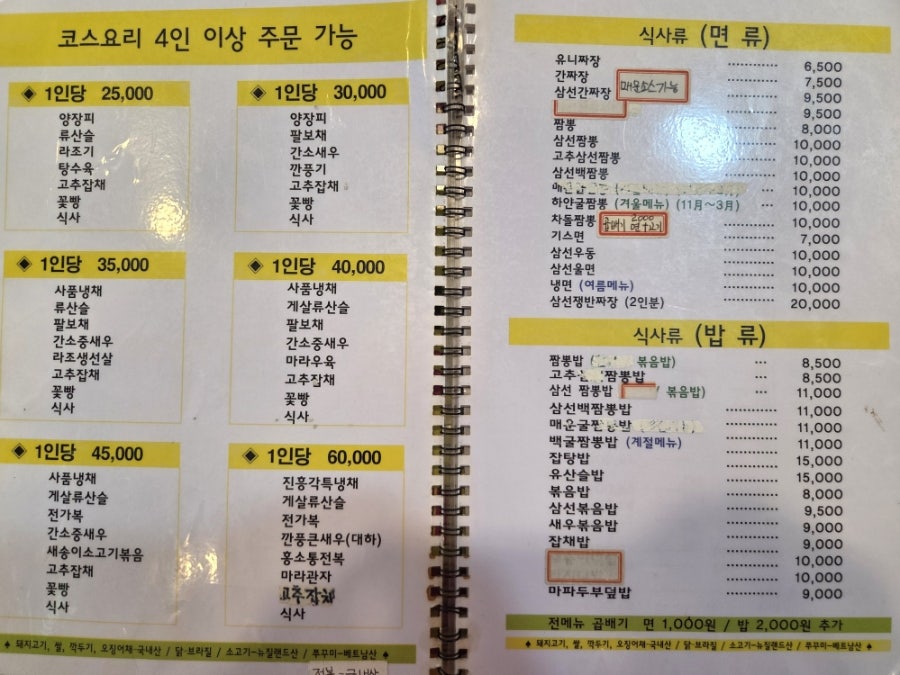 코스요리 4인 이상 주문 가능
◈ 1인당 25,000
양장피
류산슬
라조기
탕수육
고추잡채
꽃빵
식사
◈ 1인당 30,000
양장피
팔보채
간소새우
깐풍기
고추잡채
꽃빵
식사
◈ 1인당 35,000
사품냉채
류산슬
팔보채
간소중새우
라조생선살
고추잡채
꽃빵
식사
◈ 1인당 40,000
사품냉채
게살류산슬
팔보채
간소중새우
마라우육
고추잡채
꽃빵
식사
◈ 1인당 45,000
사품냉채
게살류산슬
전가복
간소중새우
새송이소고기볶음
고추잡채
꽃빵
식사
◈ 1인당 60,000
진흥각특냉채
게살류산슬
전가복
깐풍큰새우(대하)
홍소통전복
마라관자
고추잡채
식사
♠ 돼지고기, 쌀, 깍두기, 오징어채-국내산 / 닭-브라질 / 소고기-뉴질랜드산 / 쭈꾸미-베트남산 ♠
식사류 (면 류)
유니짜장 6,500
간짜장 7,500
삼선간짜장 매운소스가능 9,500
9,500
짬뽕 8,000
삼선짬뽕 10,000
고추삼선짬뽕 10,000
삼선백짬뽕 10,000
10,000
하얀굴짬뽕 (겨울메뉴) (11月~3月) 10,000
차돌짬뽕 곱배기 2000 면+고기 10,000
기스면 7,000
삼선우동 10,000
삼선울면 10,000
냉면 (여름메뉴) 10,000
삼선쟁반짜장 (2인분) 20,000
식사류 (밥 류)
짬뽕밥 ( 볶음밥) 8,500
고추 짬뽕밥 8,500
삼선 짬뽕밥 볶음밥) 11,000
삼선백짬뽕밥 11,000
매운굴짬뽕밥 11,000
백굴짬뽕밥 (계절메뉴) 11,000
잡탕밥 15,000
유산슬밥 15,000
볶음밥 8,000
삼선볶음밥 9,500
새우볶음밥 9,000
잡채밥 9,000
10,000
10,000
마파두부덮밥 9,000
전메뉴 곱배기 면 1,000원 / 밥 2,000원 추가
♠ 돼지고기, 쌀, 깍두기, 오징어채-국내산 / 닭-브라질 / 소고기-뉴질랜드산 / 쭈꾸미-베트남산 ♠